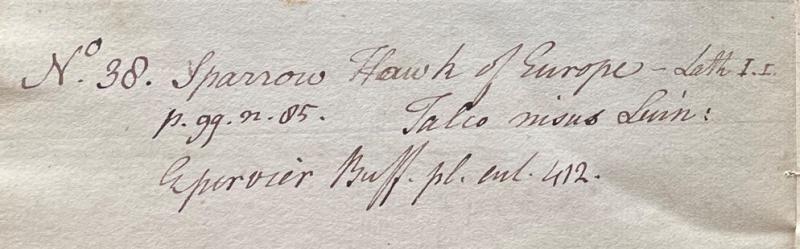 No. 38. Sparrow Hawk of Europe - Lath I.I.
p. 99. n. 85. Falco nisus Linn:
Epervier Buff. pl. enl. 412.